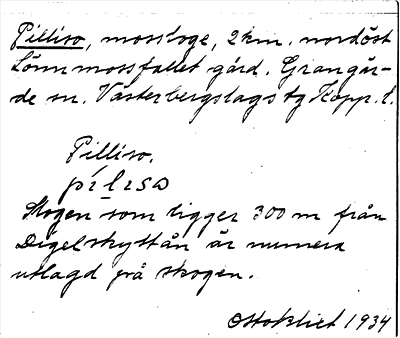 Pilliso, mosstoge, 2 km. nordöst
Lönnmossfallet gård. Grangär-
de sn. Västerbergslags tg Kopp. l.
Pilliso.
Skogen som ligger 300 m från
Digelskyttån är numera
utlagd på skogen.
1934